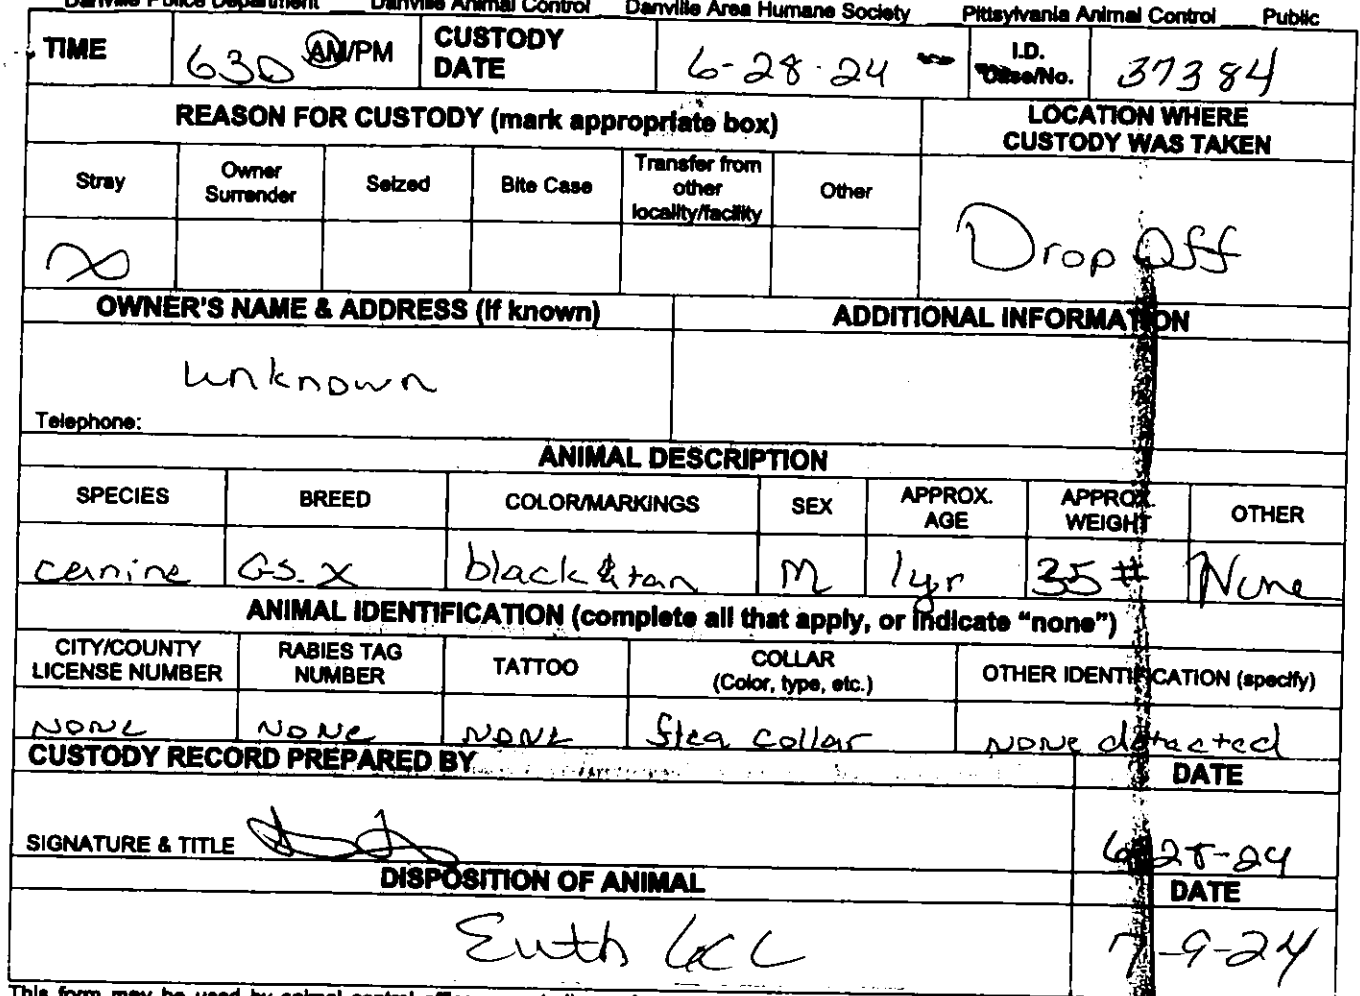 Danville Police Department Danville Animal Control Danville Area Humane Society Pittsylvania Animal Control Public
TIME 630 AM/PM CUSTODY DATE 6-28-24 I.D. Case/No. 37384
REASON FOR CUSTODY (mark appropriate box) LOCATION WHERE CUSTODY WAS TAKEN
Stray Owner Surrender Seized Bite Case Transfer from other locality/facility Other
Drop Off
OWNER'S NAME & ADDRESS (if known) ADDITIONAL INFORMATION
unknown
Telephone:
ANIMAL DESCRIPTION
SPECIES BREED COLOR/MARKINGS SEX APPROX. AGE APPROX. WEIGHT OTHER
canine GS. X black & tan M 1yr 35# None
ANIMAL IDENTIFICATION (complete all that apply, or indicate “none”)
CITY/COUNTY LICENSE NUMBER RABIES TAG NUMBER TATTOO COLLAR (Color, type, etc.) OTHER IDENTIFICATION (specify)
NONE NONE NONE flea collar NONE detected
CUSTODY RECORD PREPARED BY DATE
SIGNATURE & TITLE 6-28-24
DISPOSITION OF ANIMAL DATE
Euth 7-9-24
This form may be used by animal control